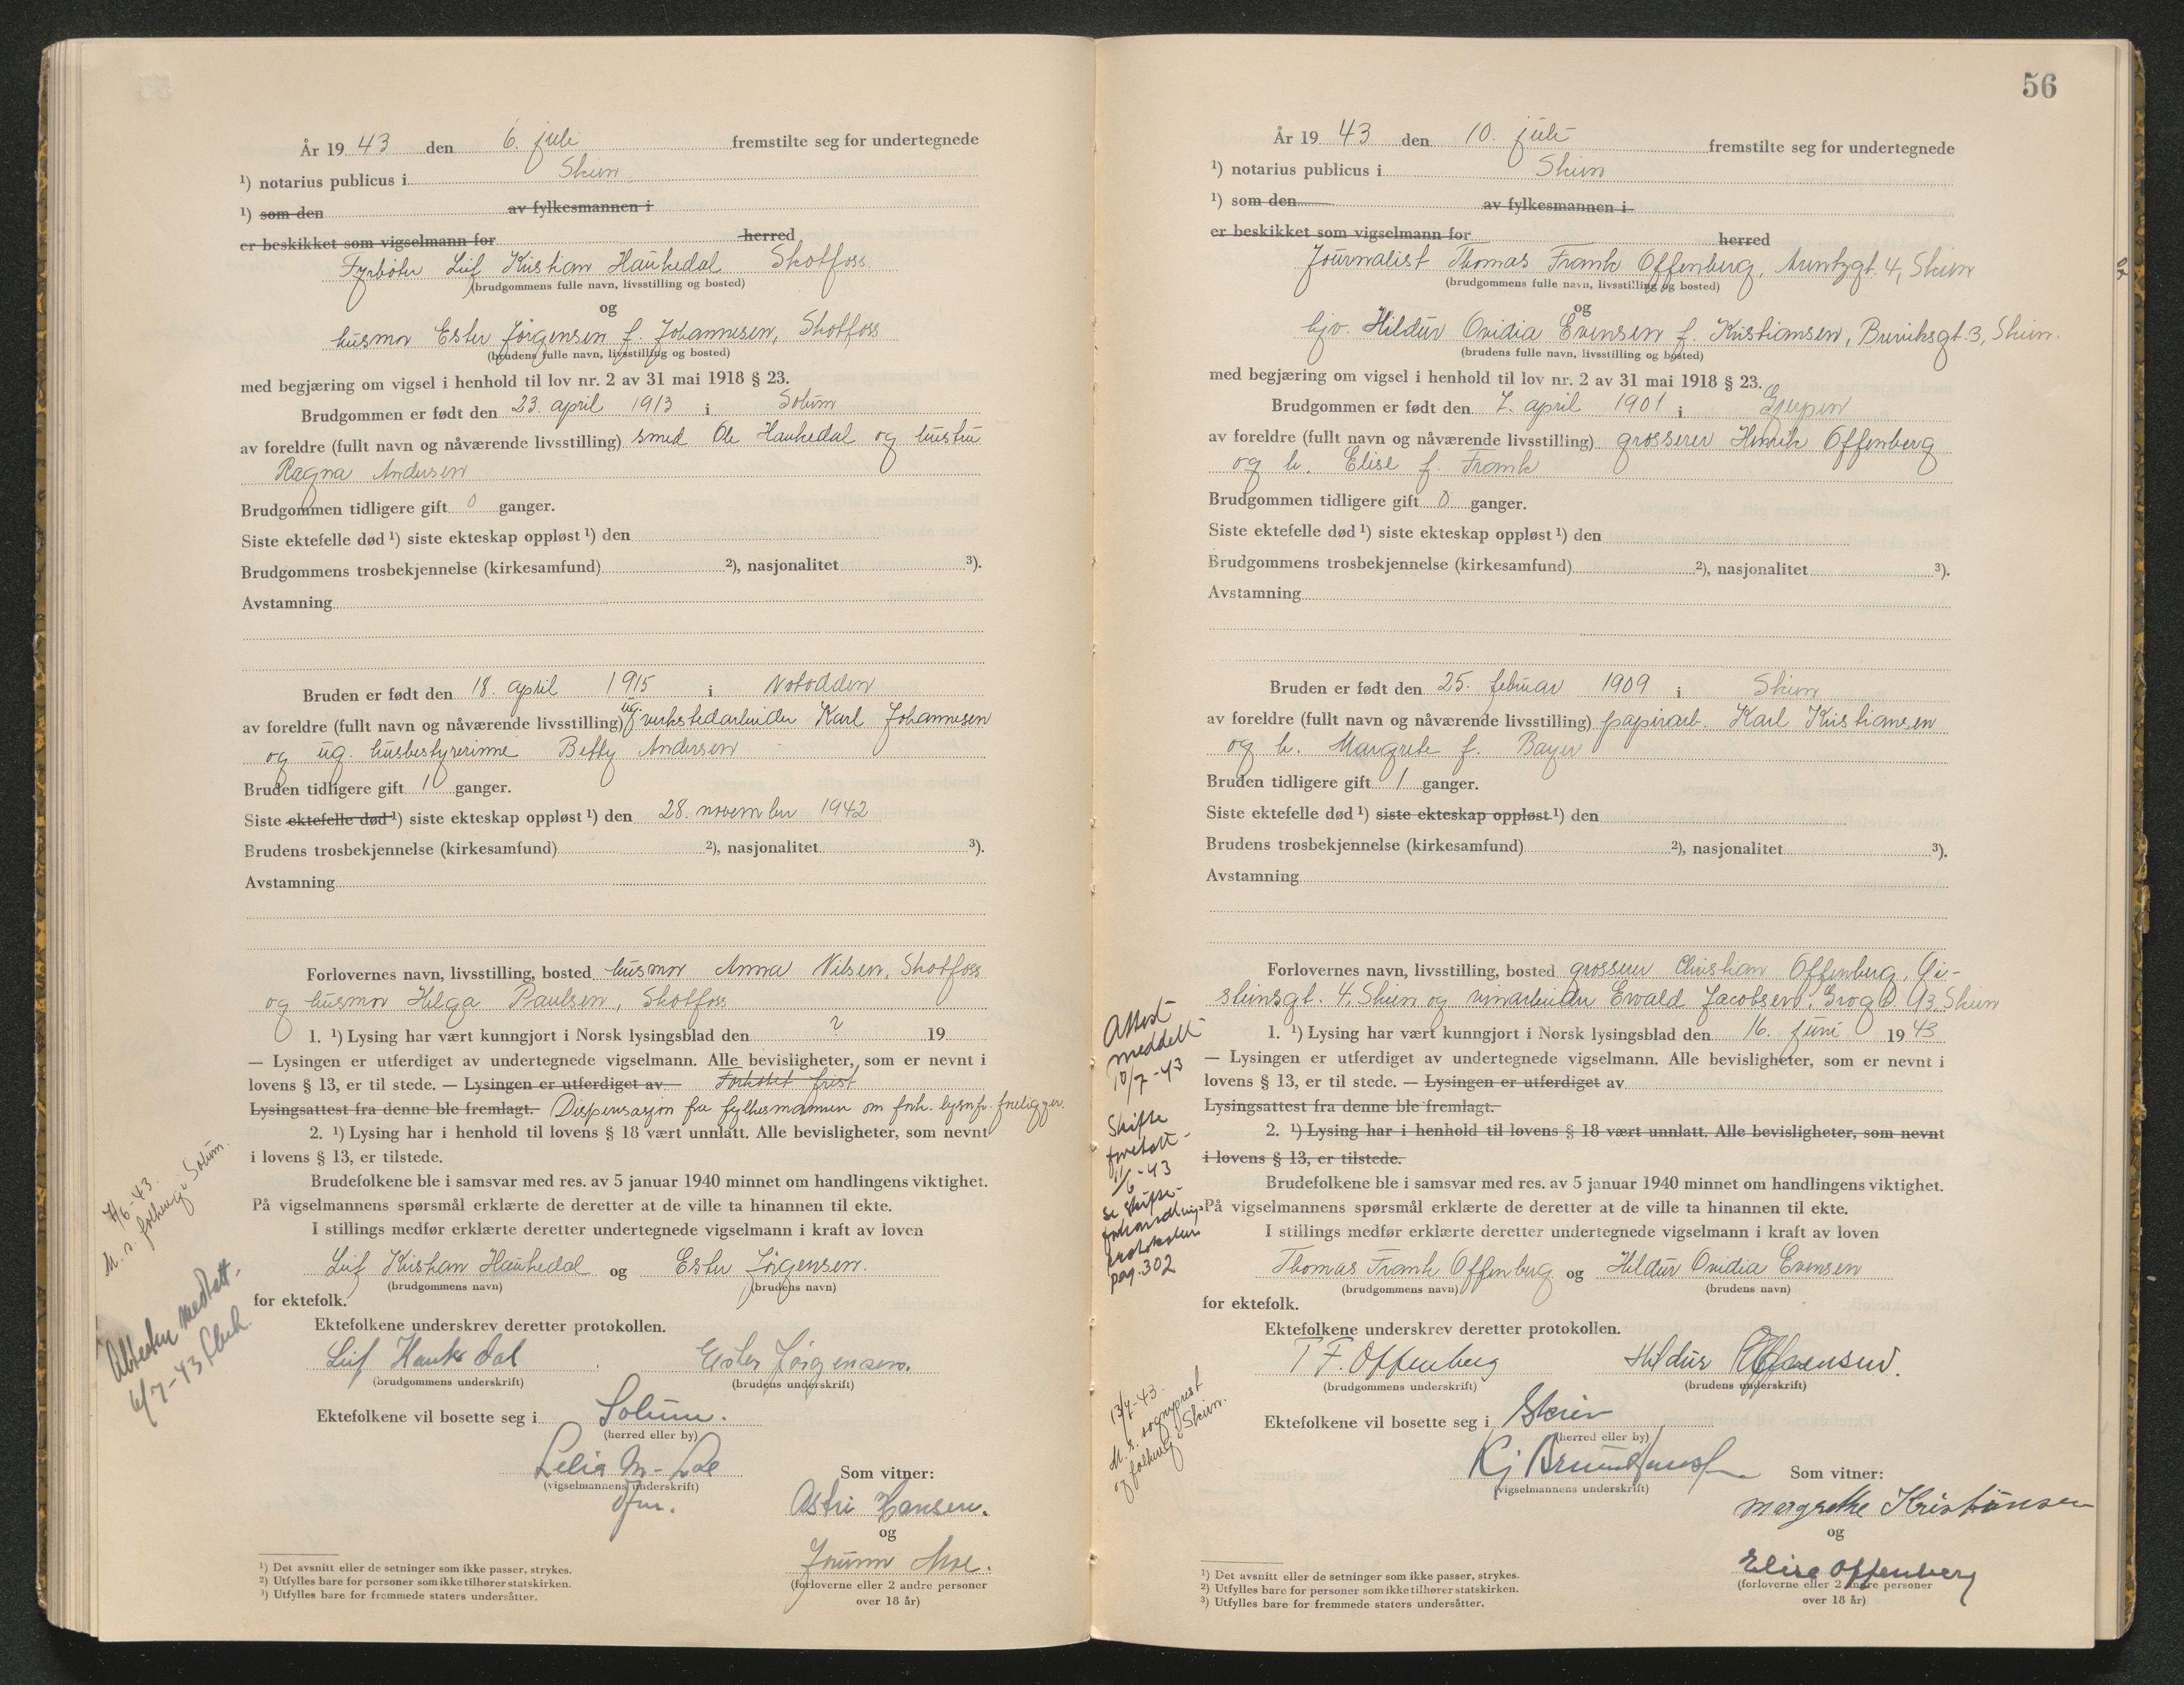 År 1943 den 6. juli fremstilte seg for undertegnede
¹) notarius publicus i Skien
¹) som den av fylkesmannen i
er beskikket som vigselmann for herred
Fyrbøter Leif Kristian Haukedal Skotfoss
(brudgommens fulle navn, livsstilling og bosted)
og
husmor Ester Jørgensen f. Johannesen, Skotfoss
(brudens fulle navn, livsstilling og bosted)
med begjæring om vigsel i henhold til lov nr. 2 av 31 mai 1918 § 23.
Brudgommen er født den 23. april 1913 i Solum
av foreldre (fullt navn og nåværende livsstilling) smed Ole Haukedal og hustru
Ragna Andersen
Brudgommen tidligere gift 0 ganger.
Siste ektefelle død ¹) siste ekteskap oppløst ¹) den
Brudgommens trosbekjennelse (kirkesamfund) ²), nasjonalitet ³).
Avstamning
Bruden er født den 18. april 1915 i Notodden
av foreldre (fullt navn og nåværende livsstilling) ug. verkstedarbeider Karl Johannesen
og ug. husbestyrerinne Betty Andersen
Bruden tidligere gift 1 ganger.
Siste ektefelle død ¹) siste ekteskap oppløst ¹) den 28. november 1942
Brudens trosbekjennelse (kirkesamfund) ²), nasjonalitet ³).
Avstamning
Forlovernes navn, livsstilling, bosted husmor Anna Nilsen, Skotfoss
og husmor Helga Paulsen, Skotfoss
1. ¹) Lysing har vært kunngjort i Norsk lysingsblad den ? 19
— Lysingen er utferdiget av undertegnede vigselmann. Alle bevisligheter, som er nevnt i
lovens § 13, er til stede. — Lysingen er utferdiget av Forkortet frist
Lysingsattest fra denne ble fremlagt. Dispensasjon fra fylkesmannen om fork. lysnfr. foreligger.
2. ¹) Lysing har i henhold til lovens § 18 vært unnlatt. Alle bevisligheter, som nevnt
i lovens § 13, er tilstede.
Brudefolkene ble i samsvar med res. av 5 januar 1940 minnet om handlingens viktighet.
På vigselmannens spørsmål erklærte de deretter at de ville ta hinannen til ekte.
I stillings medfør erklærte deretter undertegnede vigselmann i kraft av loven
Leif Kristian Haukedal og Ester Jørgensen.
(brudgommens navn) (brudens navn)
for ektefolk.
Ektefolkene underskrev deretter protokollen.
Leif Haukedal Ester Jørgensen.
(brudgommens underskrift) (brudens underskrift)
Ektefolkene vil bosette seg i Solum.
(herred eller by)
(vigselmannens underskrift)
Som vitner:
Astri Hansen.
og
Jorunn Moe.
(forloverne eller 2 andre personer
over 18 år)
7/6-43.
M. s. folkereg i Solum.
Attester meddelt.
6/7-43
¹) Det avsnitt eller de setninger som ikke passer, strykes.
²) Utfylles bare for personer som ikke tilhører statskirken.
³) Utfylles bare for fremmede staters undersåtter.
56
År 1943 den 10. juli fremstilte seg for undertegnede
¹) notarius publicus i Skien
¹) som den av fylkesmannen i
er beskikket som vigselmann for herred
Journalist Thomas Frank Offenberg, Arentzgt. 4, Skien
(brudgommens fulle navn, livsstilling og bosted)
og
hjv. Hildur Ovidia Evensen f. Kristiansen, Breviksgt. 3, Skien.
(brudens fulle navn, livsstilling og bosted)
med begjæring om vigsel i henhold til lov nr. 2 av 31 mai 1918 § 23.
Brudgommen er født den 7. april 1901 i Gjerpen
av foreldre (fullt navn og nåværende livsstilling) grosserer Henrik Offenberg
og h. Elise f. Frank
Brudgommen tidligere gift 0 ganger.
Siste ektefelle død ¹) siste ekteskap oppløst ¹) den
Brudgommens trosbekjennelse (kirkesamfund) ²), nasjonalitet ³).
Avstamning
Bruden er født den 25. februar 1909 i Skien
av foreldre (fullt navn og nåværende livsstilling) papirarb. Karl Kristiansen
og h. Margrete f. Bayer
Bruden tidligere gift 1 ganger.
Siste ektefelle død ¹) siste ekteskap oppløst ¹) den
Brudens trosbekjennelse (kirkesamfund) ²), nasjonalitet ³).
Avstamning
Forlovernes navn, livsstilling, bosted grosserer Christian Offenberg,
4, Skien og Ewald Jacobsen, Skien
1. ¹) Lysing har vært kunngjort i Norsk lysingsblad den 16. juni 1943
— Lysingen er utferdiget av undertegnede vigselmann. Alle bevisligheter, som er nevnt i
lovens § 13, er til stede. — Lysingen er utferdiget av
Lysingsattest fra denne ble fremlagt.
2. ¹) Lysing har i henhold til lovens § 18 vært unnlatt. Alle bevisligheter, som nevnt
i lovens § 13, er tilstede.
Brudefolkene ble i samsvar med res. av 5 januar 1940 minnet om handlingens viktighet.
På vigselmannens spørsmål erklærte de deretter at de ville ta hinannen til ekte.
I stillings medfør erklærte deretter undertegnede vigselmann i kraft av loven
Thomas Frank Offenberg og Hildur Ovidia Evensen
(brudgommens navn) (brudens navn)
for ektefolk.
Ektefolkene underskrev deretter protokollen.
T F. Offenberg Hildur Evensen.
(brudgommens underskrift) (brudens underskrift)
Ektefolkene vil bosette seg i Skien
(herred eller by)
(vigselmannens underskrift)
Som vitner:
Margrethe Kristiansen
og
Elise Offenberg
(forloverne eller 2 andre personer
over 18 år)
Attest
meddelt
10/7-43
Skifte
foretatt
11/6-43
se skifte-
forhandlings
protokollen
pag. 302
13/7-43.
M. s. sogneprest
og folkereg i Skien.
¹) Det avsnitt eller de setninger som ikke passer, strykes.
²) Utfylles bare for personer som ikke tilhører statskirken.
³) Utfylles bare for fremmede staters undersåtter.